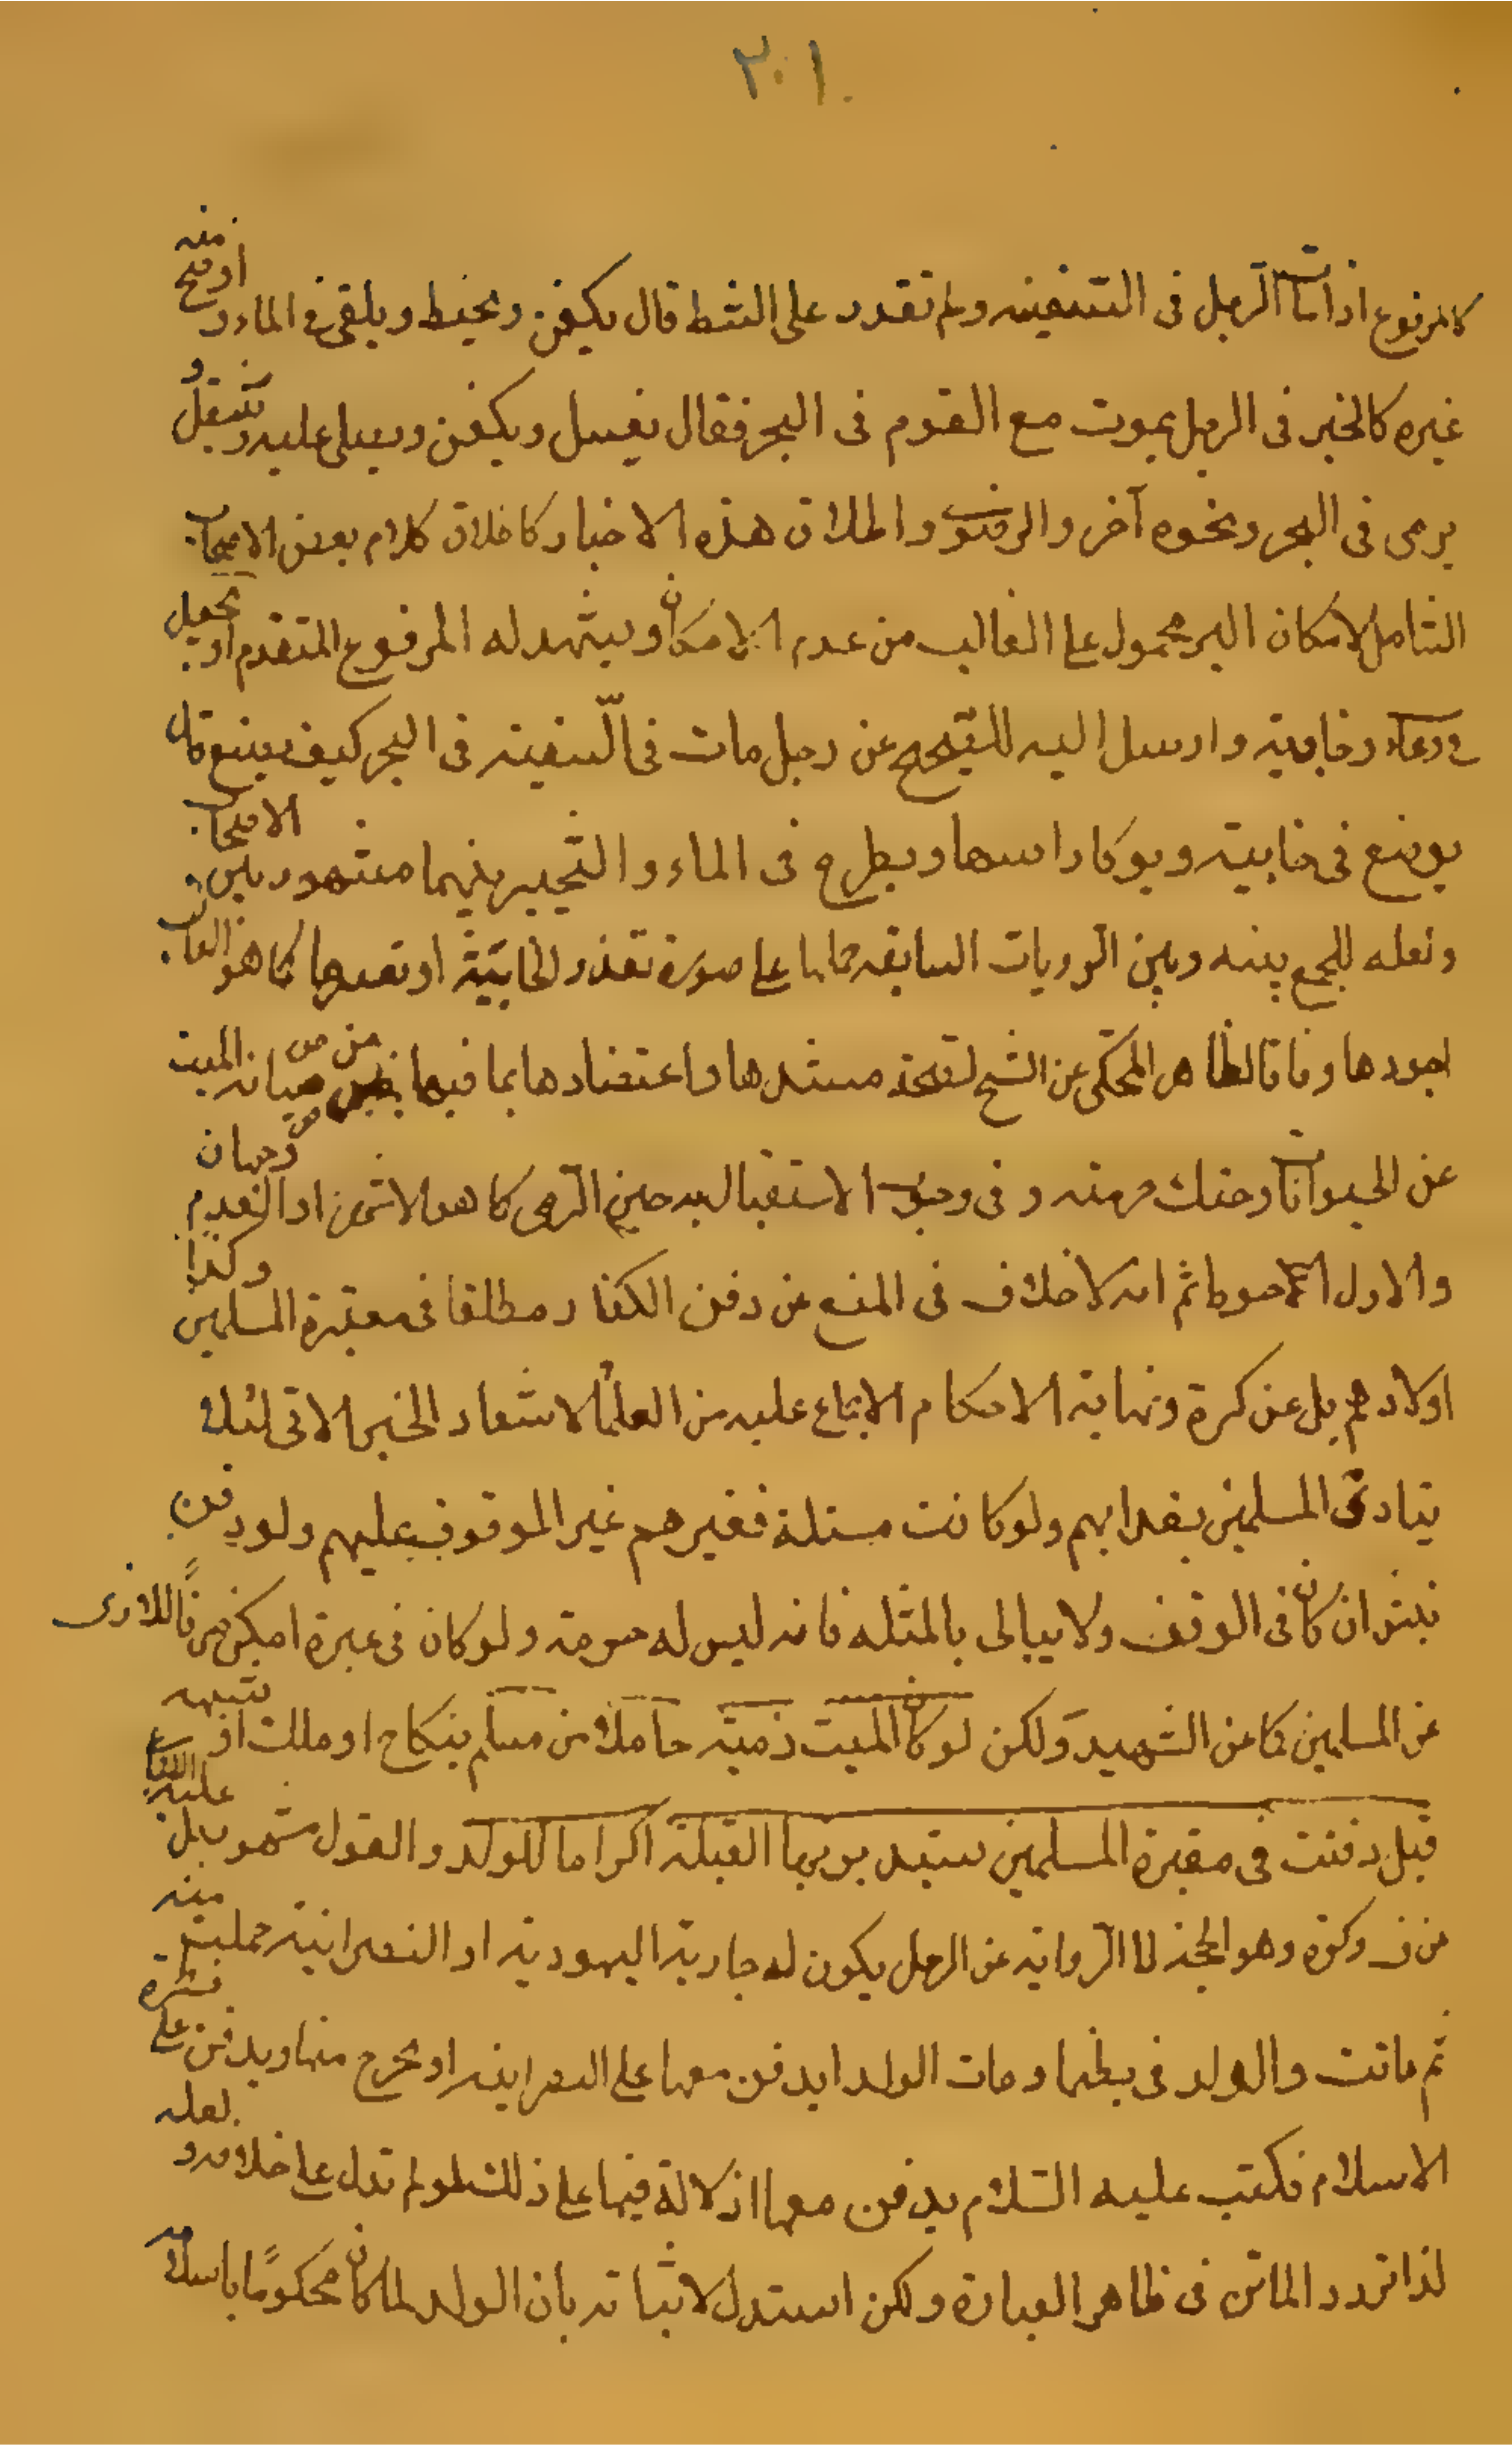 ٣٠١
كالمرفوع اذا مات الرجل فى السفينه ولم تقدر على الشط قال يكفن ويحنط ويلقى فى الماء و اوضح منه
غيره كالخبر فى الرجل يموت مع القوم فى البحر فقال يغسل ويكفن ويصلى عليه ويثقل و
يرمى فى البحر ونحوه آخر والرضوى واطلاق هذه الاخبار كاطلاق كلام بعض الاصحاب
الشامل لامكان البر محمول على الغالب من عدم الامكان ويشهد له المرفوع المتقدم او يجعل
فى وعاء وخابية وارسل اليه للصحيح عن رجل مات فى السفينه فى البحر كيف يصنع قال
يوضع فى خابيته ويوكا راسها ويطرح فى الماء والتخيير بينهما مشهور بين الاصحاب
ولعله للجمع بينه وبين الرويات السابقه حملها على صورة تعذر الخابيّة او تعسرها كما هو الغالب
اجودها وفاقا لظاهر المحكى عن الشيخ لصحة مستندها واعتضادها بما فيها من صيانه الميت
عن الحيوانات وهتك حرمته وفى وجوب الاستقبال به حين الرمى كما هو الاشهر او العدم وجهان
والاول احوط ثم انه لا خلاف فى المنع عن دفن الكفار مطلقا فى مقبرة المسلمين وكذا
اولادهم بل عن كرة ونهاية الاحكام الاجماع عليه من العلماء لاشعار الخبر الاتى لئلا
يتادى المسلمين بعذابهم ولو كانت مسبلة فغيرهم غير الموقوف عليهم ولو دفن
نبش ان كان فى الوقف ولا يبالى بالمثله فانه ليس له حرمة ولو كان فى غيره امكن صرفاً للاذى
عن المسلمين كما عن الشهيد ولكن لو كان الميت ذمية حاملا من مسلم بنكاح او ملك او شبهه
قيل دفنت فى مقبرة المسلمين يستدبر بها القبلة اكراما للولد والقول مشهور بل عليه
من ف وكرة وهو الحجة لا الرواية عن الرجل يكون له جارية اليهودية او النصرانية حملت منه
ثم ماتت والولد فى بطنها ومات الولد ايدفن معها على النصرانيه او يخرج منها ويدفن على فطرة
الاسلام فكتب عليه السلام يدفن معها اذ لا دلالة فيها على ذلك لو لم تدل على خلافه و لعله
لذا تردد الماتن فى ظاهر العبارة ولكن استدل لاثباته بان الولد لما كان محكومًا باسلامه